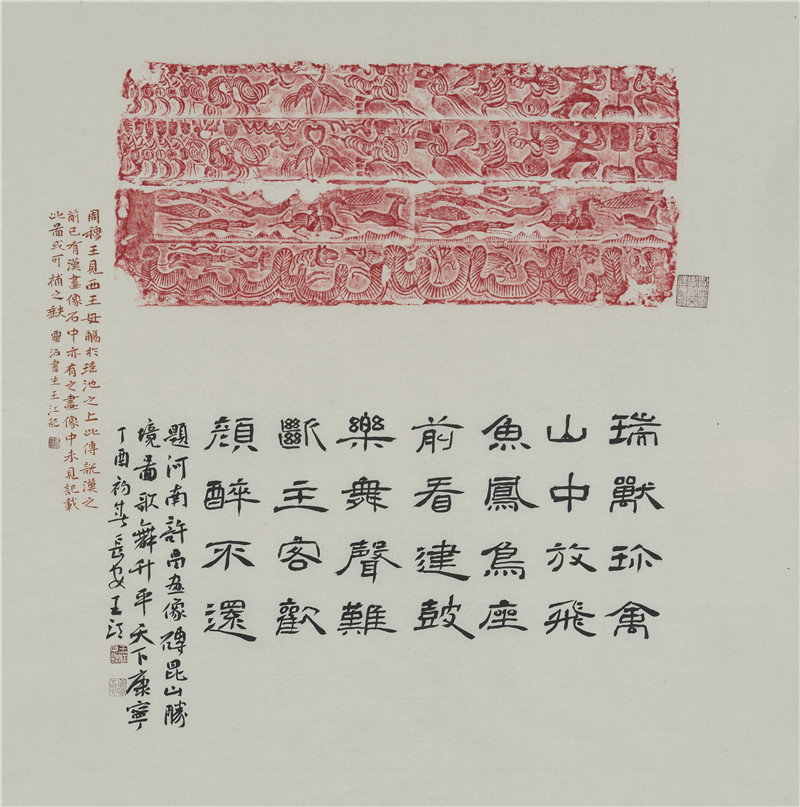 瑞獸珎禽
山中放飛
魚鳳鳥座
前看建鼓
樂舞聲難
斷主客歡
顔醉不還
題河南許昌畫像磚昆山勝
境圖歌舞升平天下康寧
丁酉初春長安王江
周穆王見西王母觴於瑤池之上此傳說漢之
前已有漢畫像石中亦有之畫像中未見記載
此圖或可補之缺 書生王江記